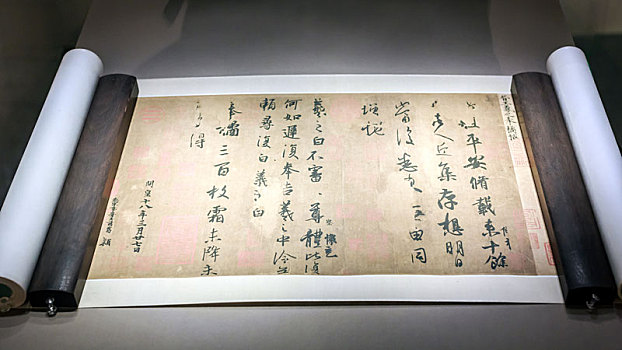 此粗平安脩載来十餘
諸人近集存想明日
當復悉来無由同
增慨
羲之白不審尊體比復
何如遲復奉告羲之中冷無
賴尋復白羲之白
奉橘三百枚霜未降未
可多得
開皇十八年三月廿七日